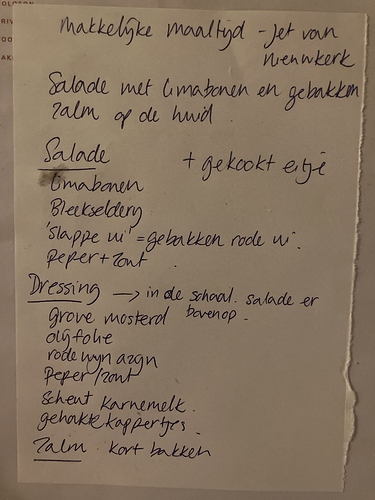 Makkelijke maaltijd - Jet van
Nieuwkerk
Salade met limabonen en gebakken
Zalm op de huid.
Salade + gekookt eitje
limabonen
Bleekselderij
'Slappe ui' = gebakken rode ui.
Peper + zout
Dressing → in de schaal. Salade er
bovenop.
grove mosterd
olijfolie
rode wijn azijn
Peper/zout
Scheut karnemelk.
gehakte kappertjes.
Zalm kort bakken